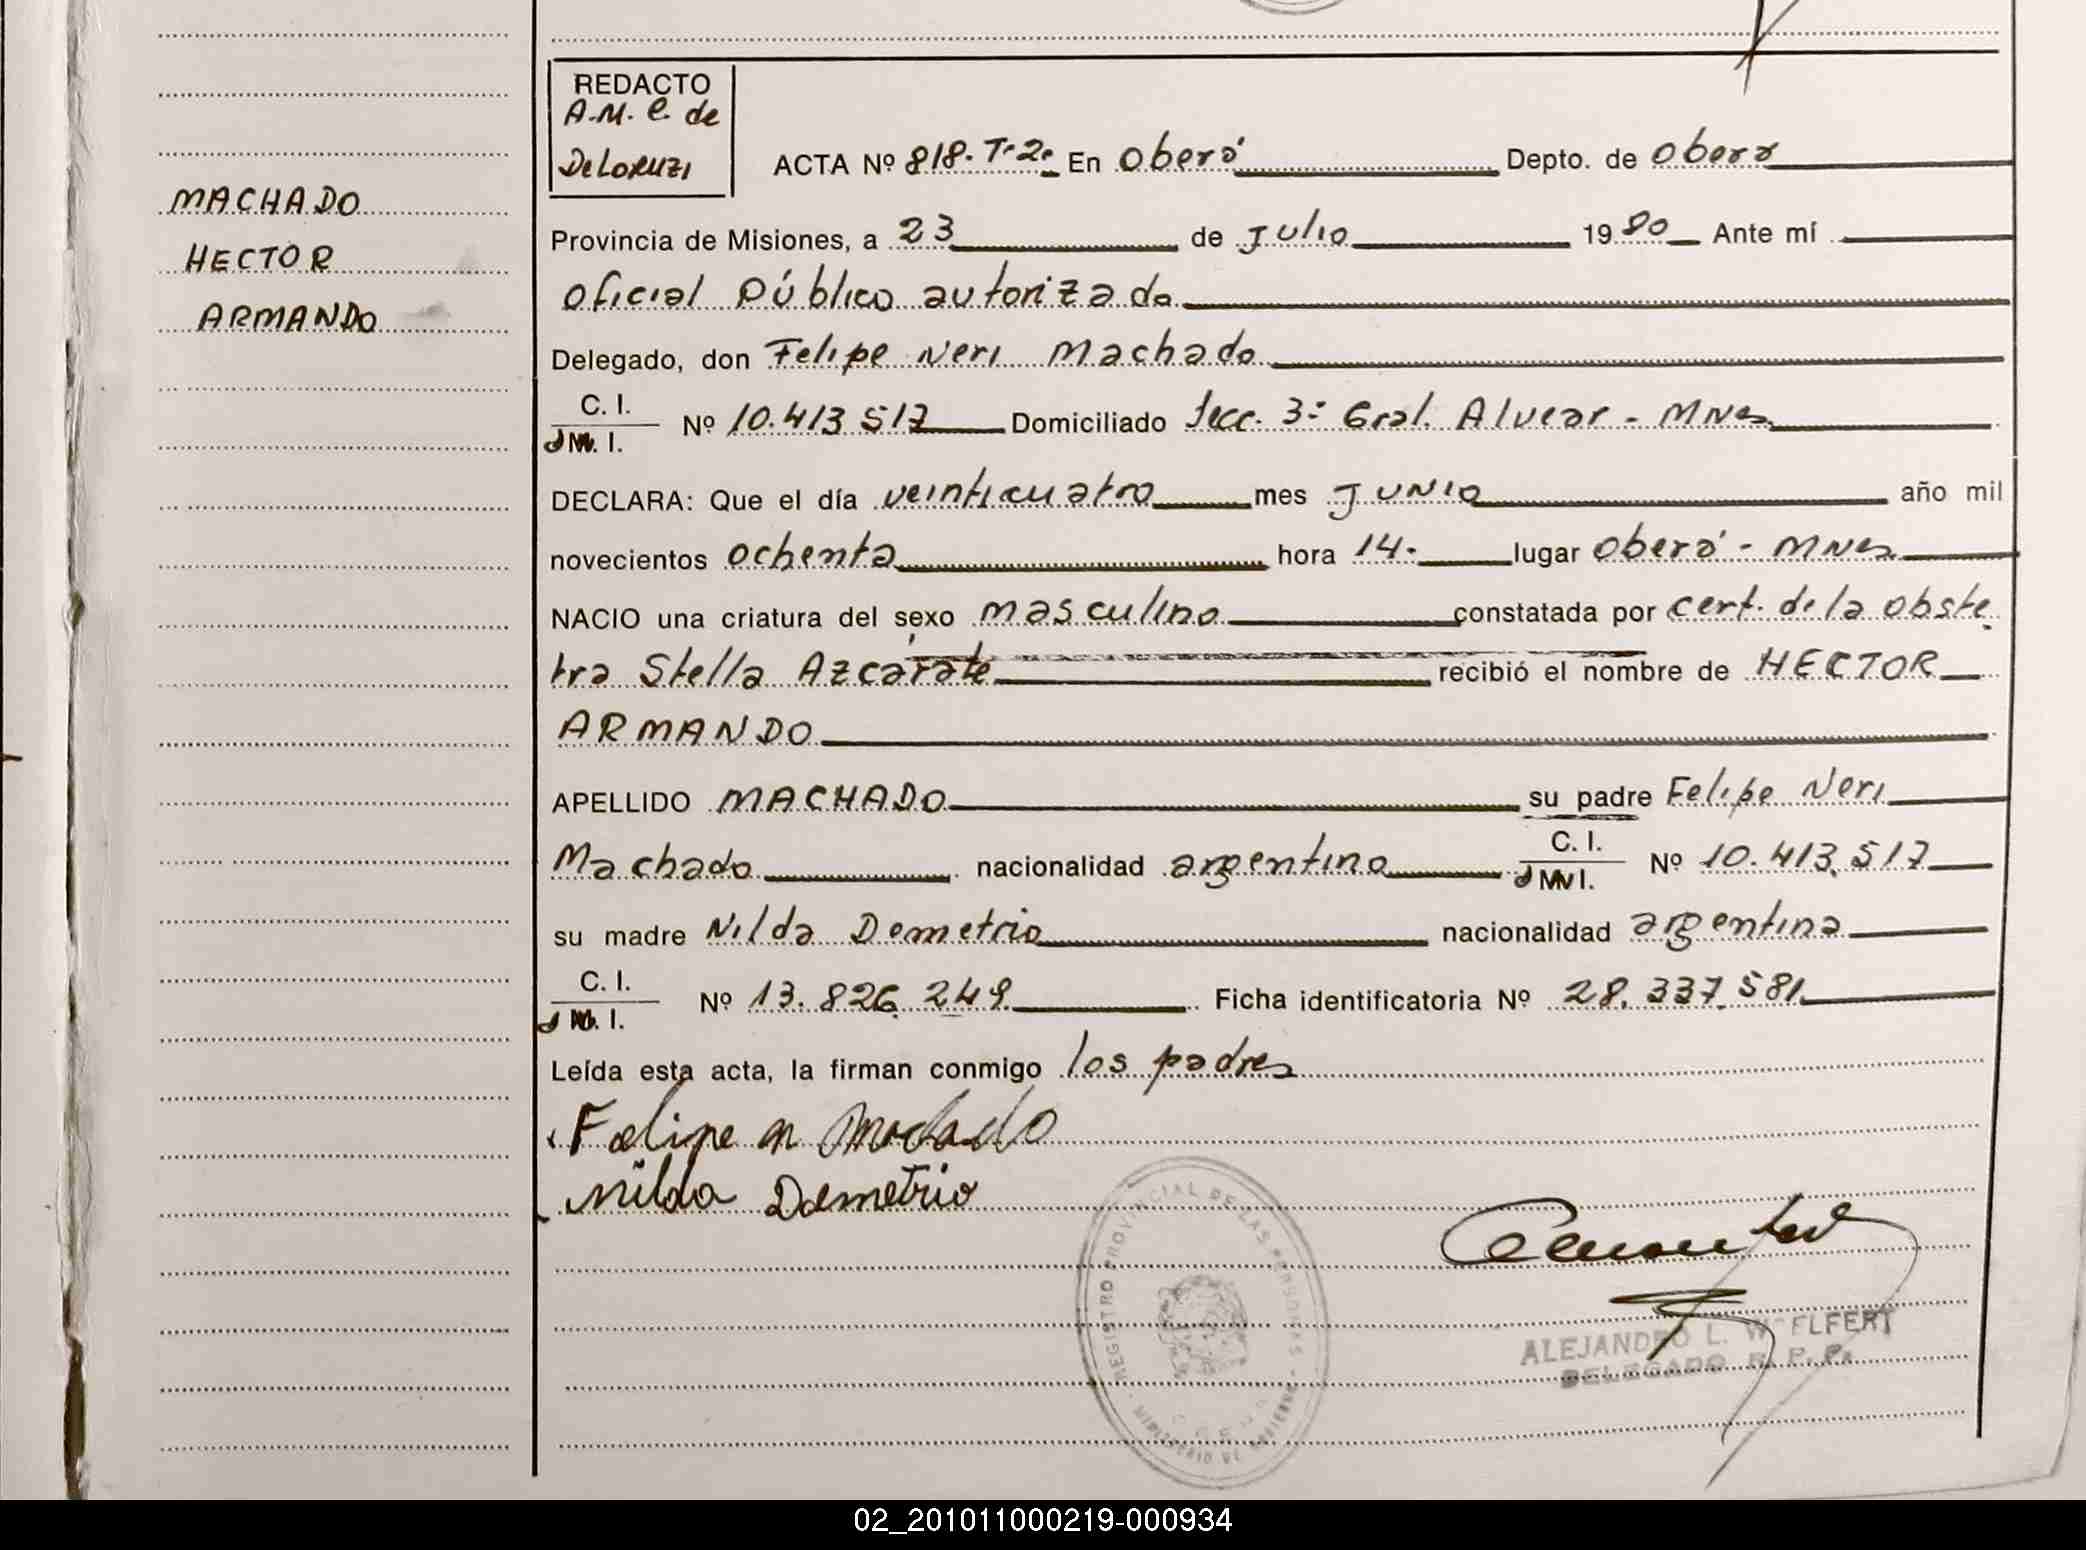 REDACTO
A.M. C. de
DeLoruzi
ACTA Nº 818. Tº 2º En Oberá Depto. de Oberá
MACHADO
HECTOR
ARMANDO
Provincia de Misiones, a 23 de Julio 1980 Ante mí
Oficial Público autorizado
Delegado, don Felipe Neri Machado
C. I.
M. I. Nº 10.413.517 Domiciliado Secc. 3ª Gral. Alvear - Mnes
DECLARA: Que el día veinticuatro mes JUNIO año mil
novecientos ochenta hora 14. lugar Oberá - Mnes
NACIO una criatura del sexo masculino constatada por cert. de la obste
tra Stella Azcárate recibió el nombre de HECTOR
ARMANDO
APELLIDO MACHADO su padre Felipe Neri
Machado nacionalidad argentino C. I.
M. I. Nº 10.413.517
su madre Nilda Demetrio nacionalidad argentina
C. I.
M. I. Nº 13.826.249 Ficha identificatoria Nº 28.337.581
Leída esta acta, la firman conmigo los padres
Felipe n Machado
Nilda Demetrio
REGISTRO PROVINCIAL DE LAS PERSONAS
ALEJANDRO L. WOELFERT
DELEGADO R. P. P.
02_201011000219-000934